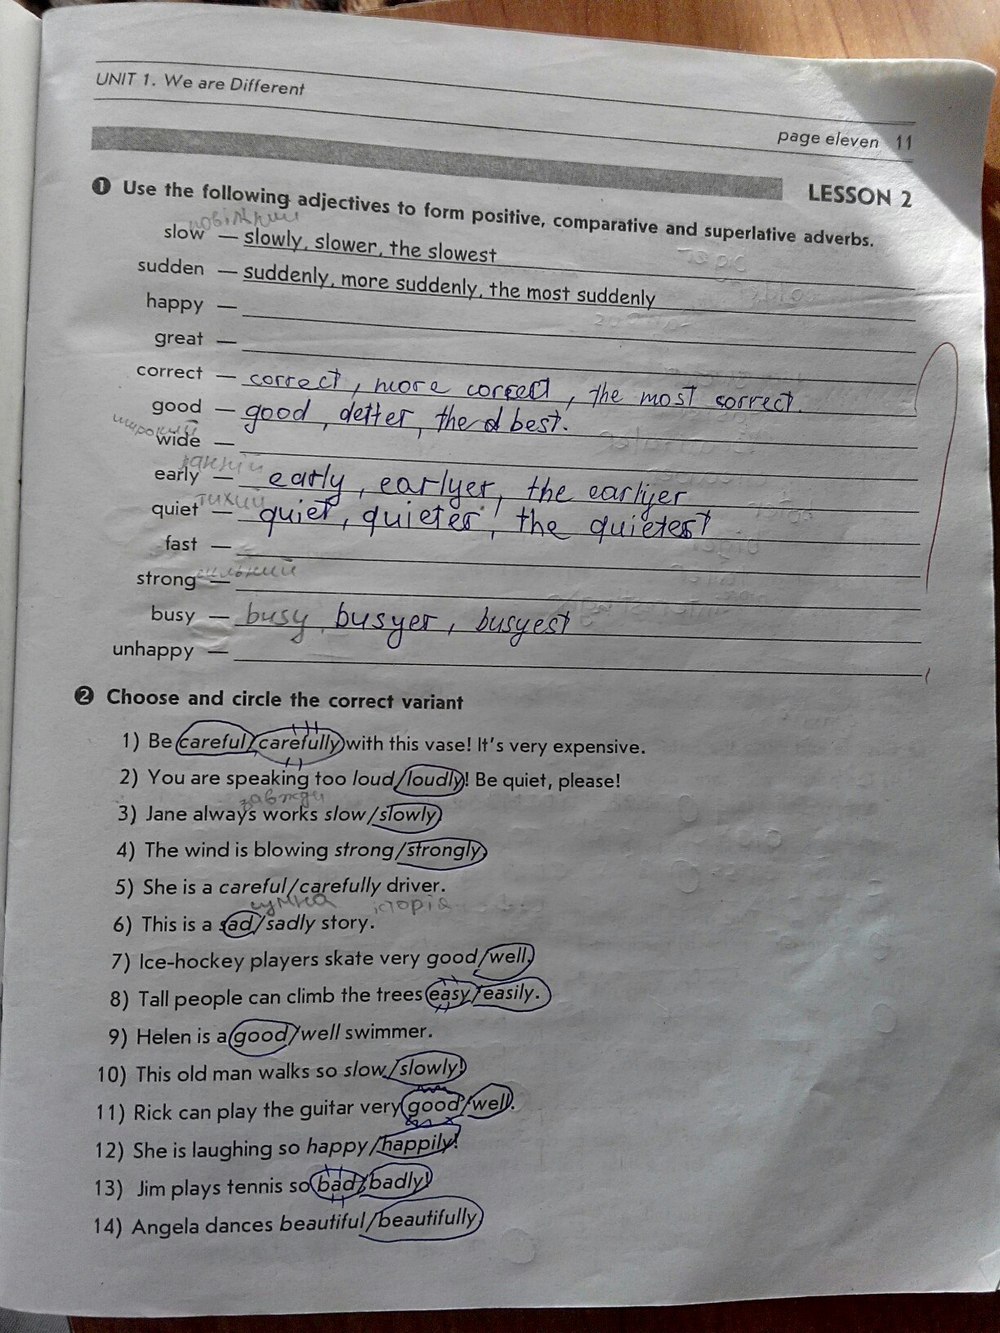 UNIT 1. We are Different
page eleven 11
LESSON 2
❶ Use the following adjectives to form positive, comparative and superlative adverbs.
slow — slowly, slower, the slowest
sudden — suddenly, more suddenly, the most suddenly
happy —
great —
correct — correct, more correct, the most correct.
good — good, detter, the best.
широкий
wide —
early — early, earlyer, the earlyer
тихий
quiet — quiet, quieter, the quietest
fast —
strong —
busy — busy busyer, busyest
unhappy —
❷ Choose and circle the correct variant
1) Be careful/carefully with this vase! It's very expensive.
2) You are speaking too loud/loudly! Be quiet, please!
завжди
3) Jane always works slow/slowly
4) The wind is blowing strong/strongly.
5) She is a careful/carefully driver.
сумна історія
6) This is a sad/sadly story.
7) Ice-hockey players skate very good/well.
8) Tall people can climb the trees easy/easily.
9) Helen is a good/well swimmer.
10) This old man walks so slow/slowly!
11) Rick can play the guitar very good/well.
12) She is laughing so happy/happily!
13) Jim plays tennis so bad/badly!
14) Angela dances beautiful/beautifully